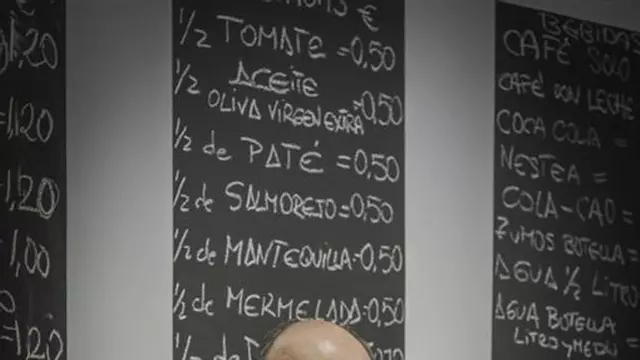 1,20
=1,20
1,20
=1,00
=1,20
€
1/2 TOMATE =0,50
1/2 ACEITE
OLIVA VIRGEN EXTRA =0,50
1/2 de PATÉ =0,50
1/2 de SALMOREJO=0,50
1/2 de MANTEQUILLA=0,50
1/2 de MERMELADA=0,50
1/2 de
BEBIDAS
CAFÉ SOLO
CAFÉ CON LECHE
COCA COLA =
NESTEA =
COLA-CAO =
ZUMOS BOTELLA =
AGUA 1/2 LITRO
AGUA BOTELLA
LITRO y MEDIO